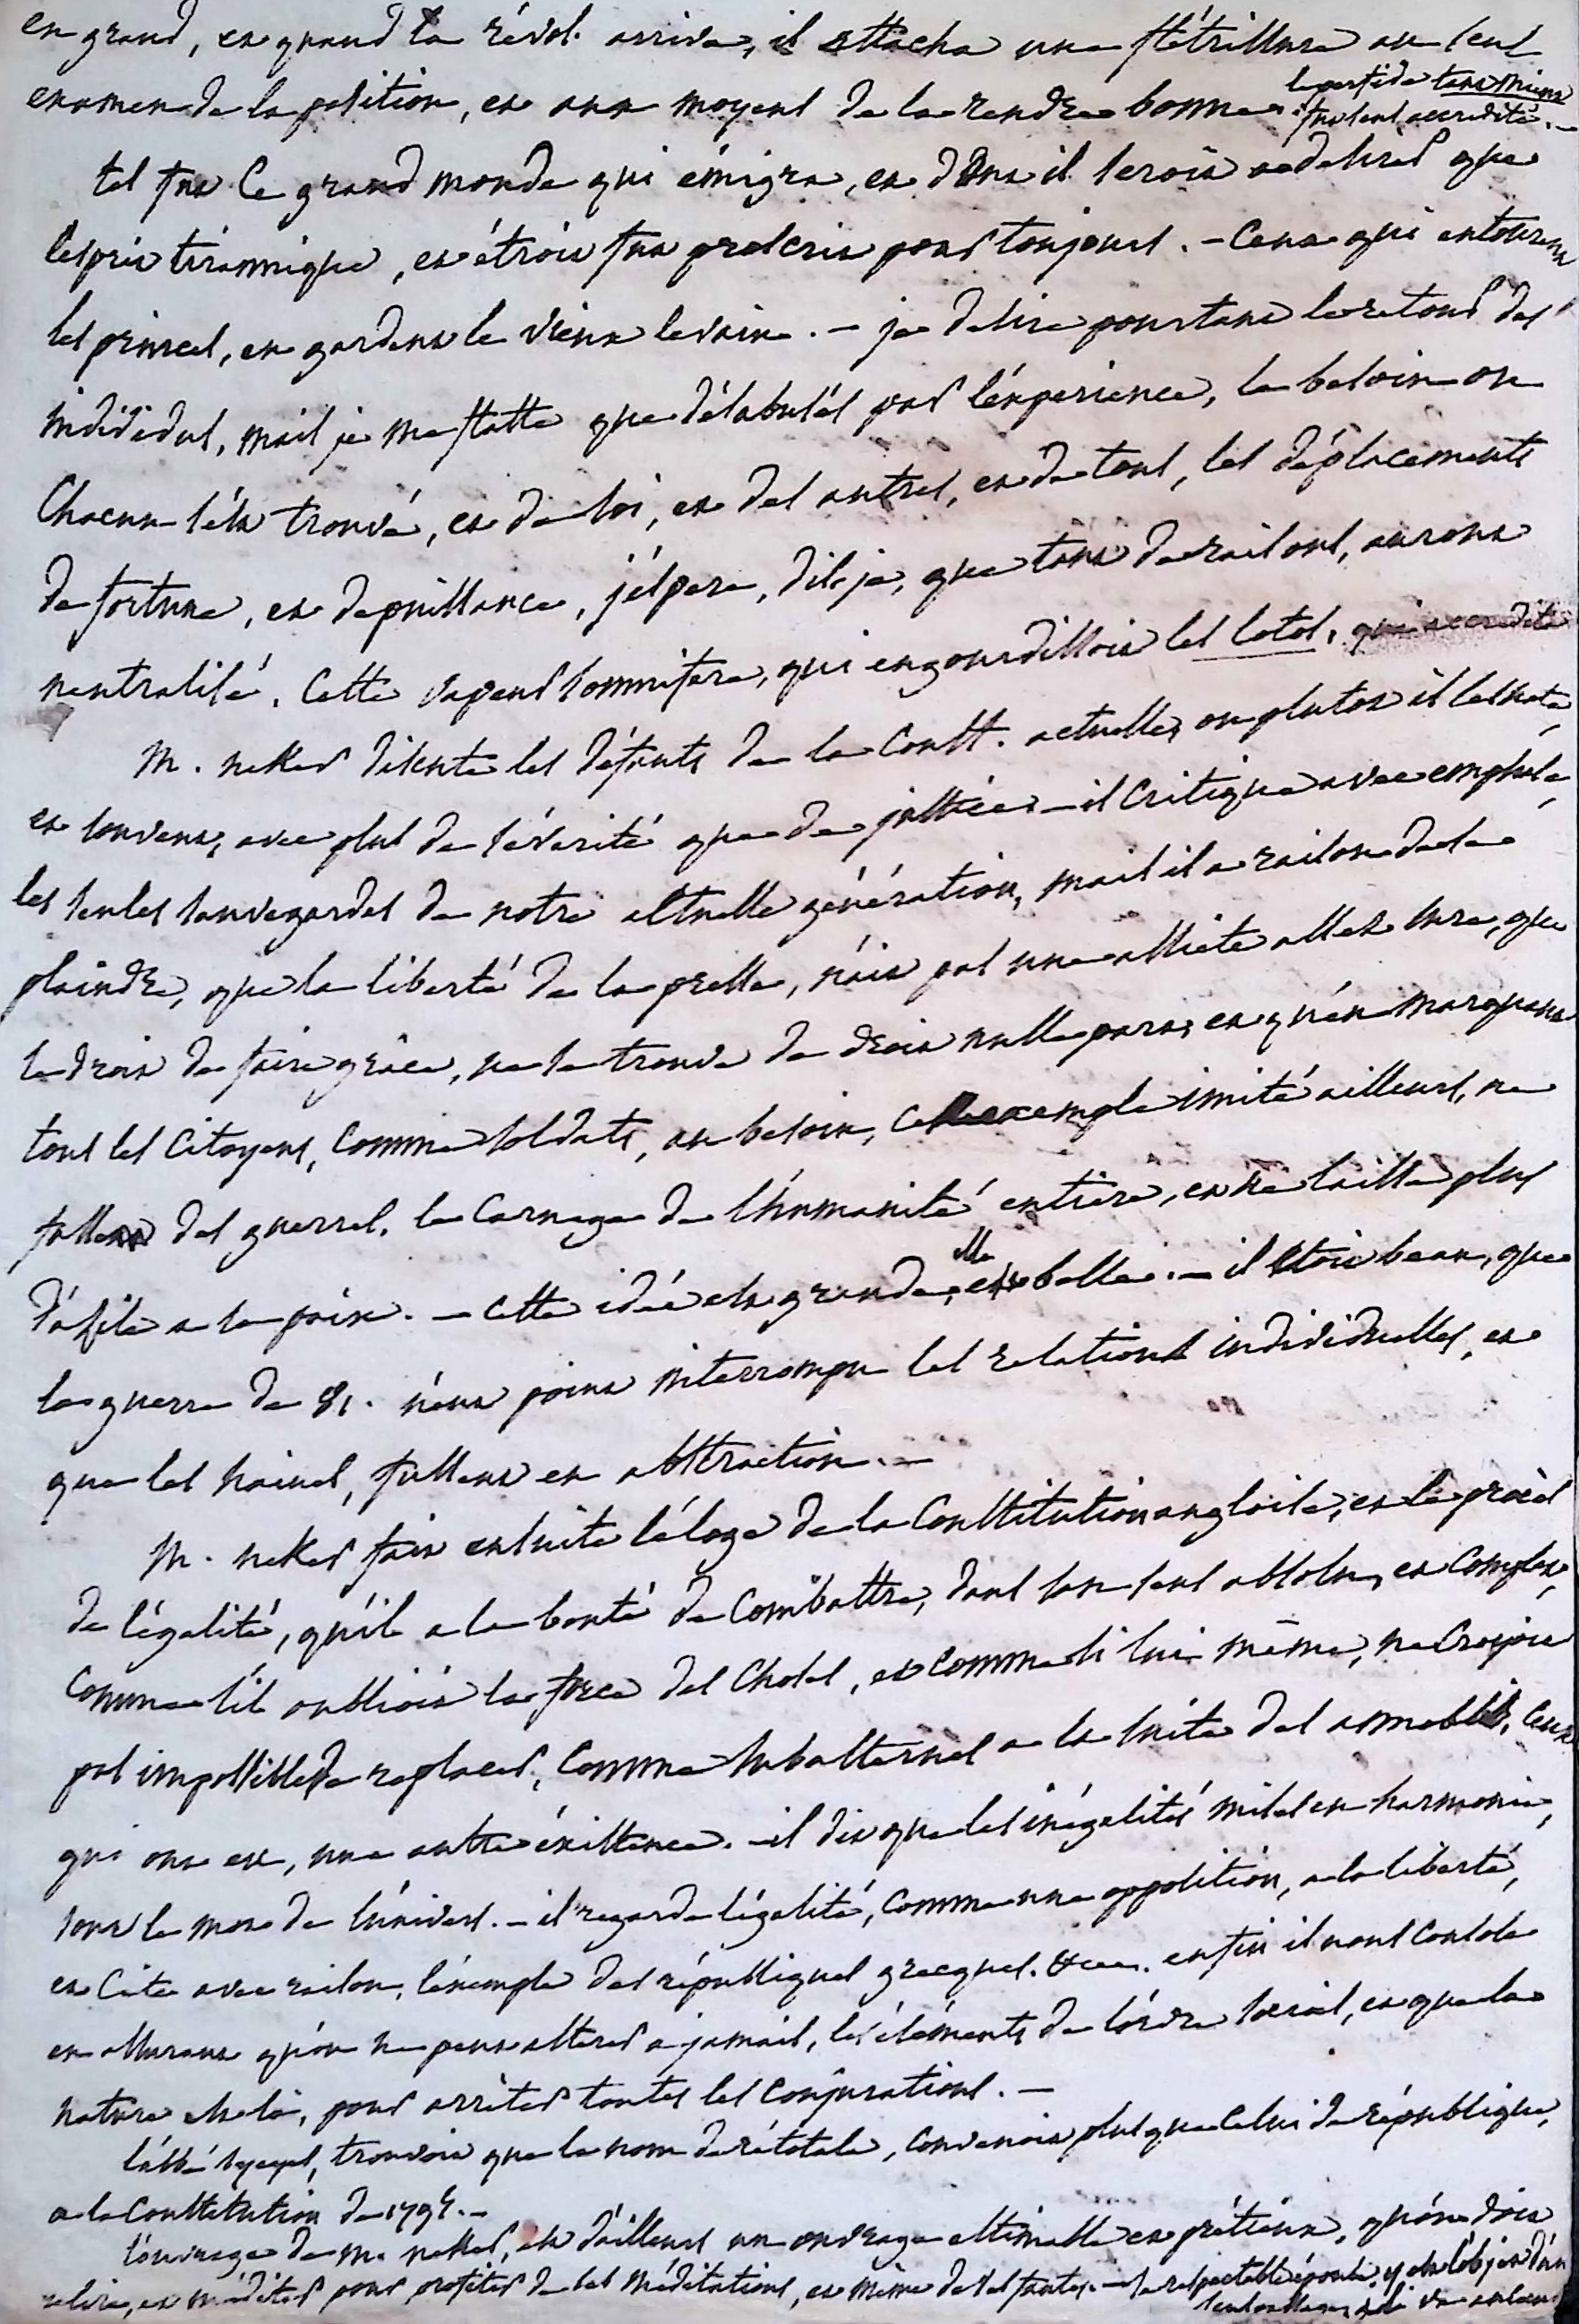 en grand, et quand la révol. arriva, il attacha une flétrissure au seul
examen de la position, et aux moyens de la rendre bonne. le perfide tant mieux
fut seul accrédité. —
tel fut ce grand monde qui émigra, et dont il seroit a desirer que
l'esprit tirannique, et étroit fut proscrit pour toujours. — Ceux qui entourent
les princes, en gardent le vieux levain. — je desire pourtant le retour des
individus, mais je me flatte que désabusés par l'éxperience, le besoin ou
Chacun s'est trouvé, et de soi, et des autres, et de tout, les déplacements
de fortune, et de puissance, j'éspere, dis-je, que tant de raisons, auront
neutralisé, cette vapeur somnifere, qui engourdissoit les sotos,
M. neker discute les défauts de la Constt. actuelle, ou plutot il les note,
et souvent, avec plus de sévérité que de justice. — il critique avec emphase,
les seules sauvegardes de notre actuelle génération, mais il a raison de se
plaindre, que la liberté de la presse, n'ait pas une assiete assez sure, que
le droit de faire grâce, ne se trouve de droit nulle part, et qu'en marquant
tous les Citoyens, comme soldats, au besoin, cet exemple imité ailleurs, ne
fasse des guerres, le Carnage de l'humanité entiere, et ne laisse plus
d'asile a la paix. — cette idée est grande, elle est belle. — il étoit beau, que
la guerre de 81. n'eut point interrompu les relations individuelles, et
que les haines, fussent en abstraction. —
M. neker fait ensuite l'éloge de la Constitution angloise, et le procès
de l'égalité, qu'il a la bonté de Combattre, dans son sens absolu, et complet,
Comme s'il oublioit la force des choses, et comme si lui même, ne croyoit
pas impossible de replacer, comme subalternes a la suite des annoblis, ceux
qui ont eu, une autre éxistence. — il dit que les inégalités mises en harmonie,
sont le mot de l'univers. — il regarde l'égalité, comme une opposition, a la liberté,
et cite avec raison, l'éxemple des républiques grecques. &c. enfin il nous console
en assurant qu'on ne peut alterer a jamais, les éléments de l'ordre social, et que la
nature est là, pour arrêter toutes les conjurations. —
l'abbé syeyes, trouvoit que le nom de rétotale, convenoit plus que celui de république,
a la Constitution de 1795. —
l'ouvrage de m. neker, est d'ailleurs un ouvrage estimable et prétieux, qu'on doit
relire, et méditer pour profiter de ses méditations, et même de ses fautes. — sa respectable épouse, y est l'objet d'un